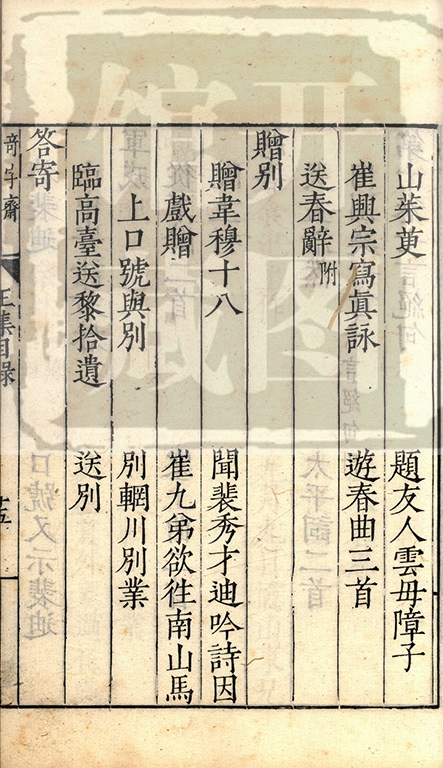 山茱萸　題友人雲毋障子
崔興宗寫眞詠　遊春曲三首
送春辭附
贈別
贈韋穆十八　聞裴秀才迪吟詩因
戲贈　崔九弟欲徃南山馬
上口號與別　別輞川別業
臨高臺送黎拾遺　送別
答寄
奇字齋　王集目錄　十五